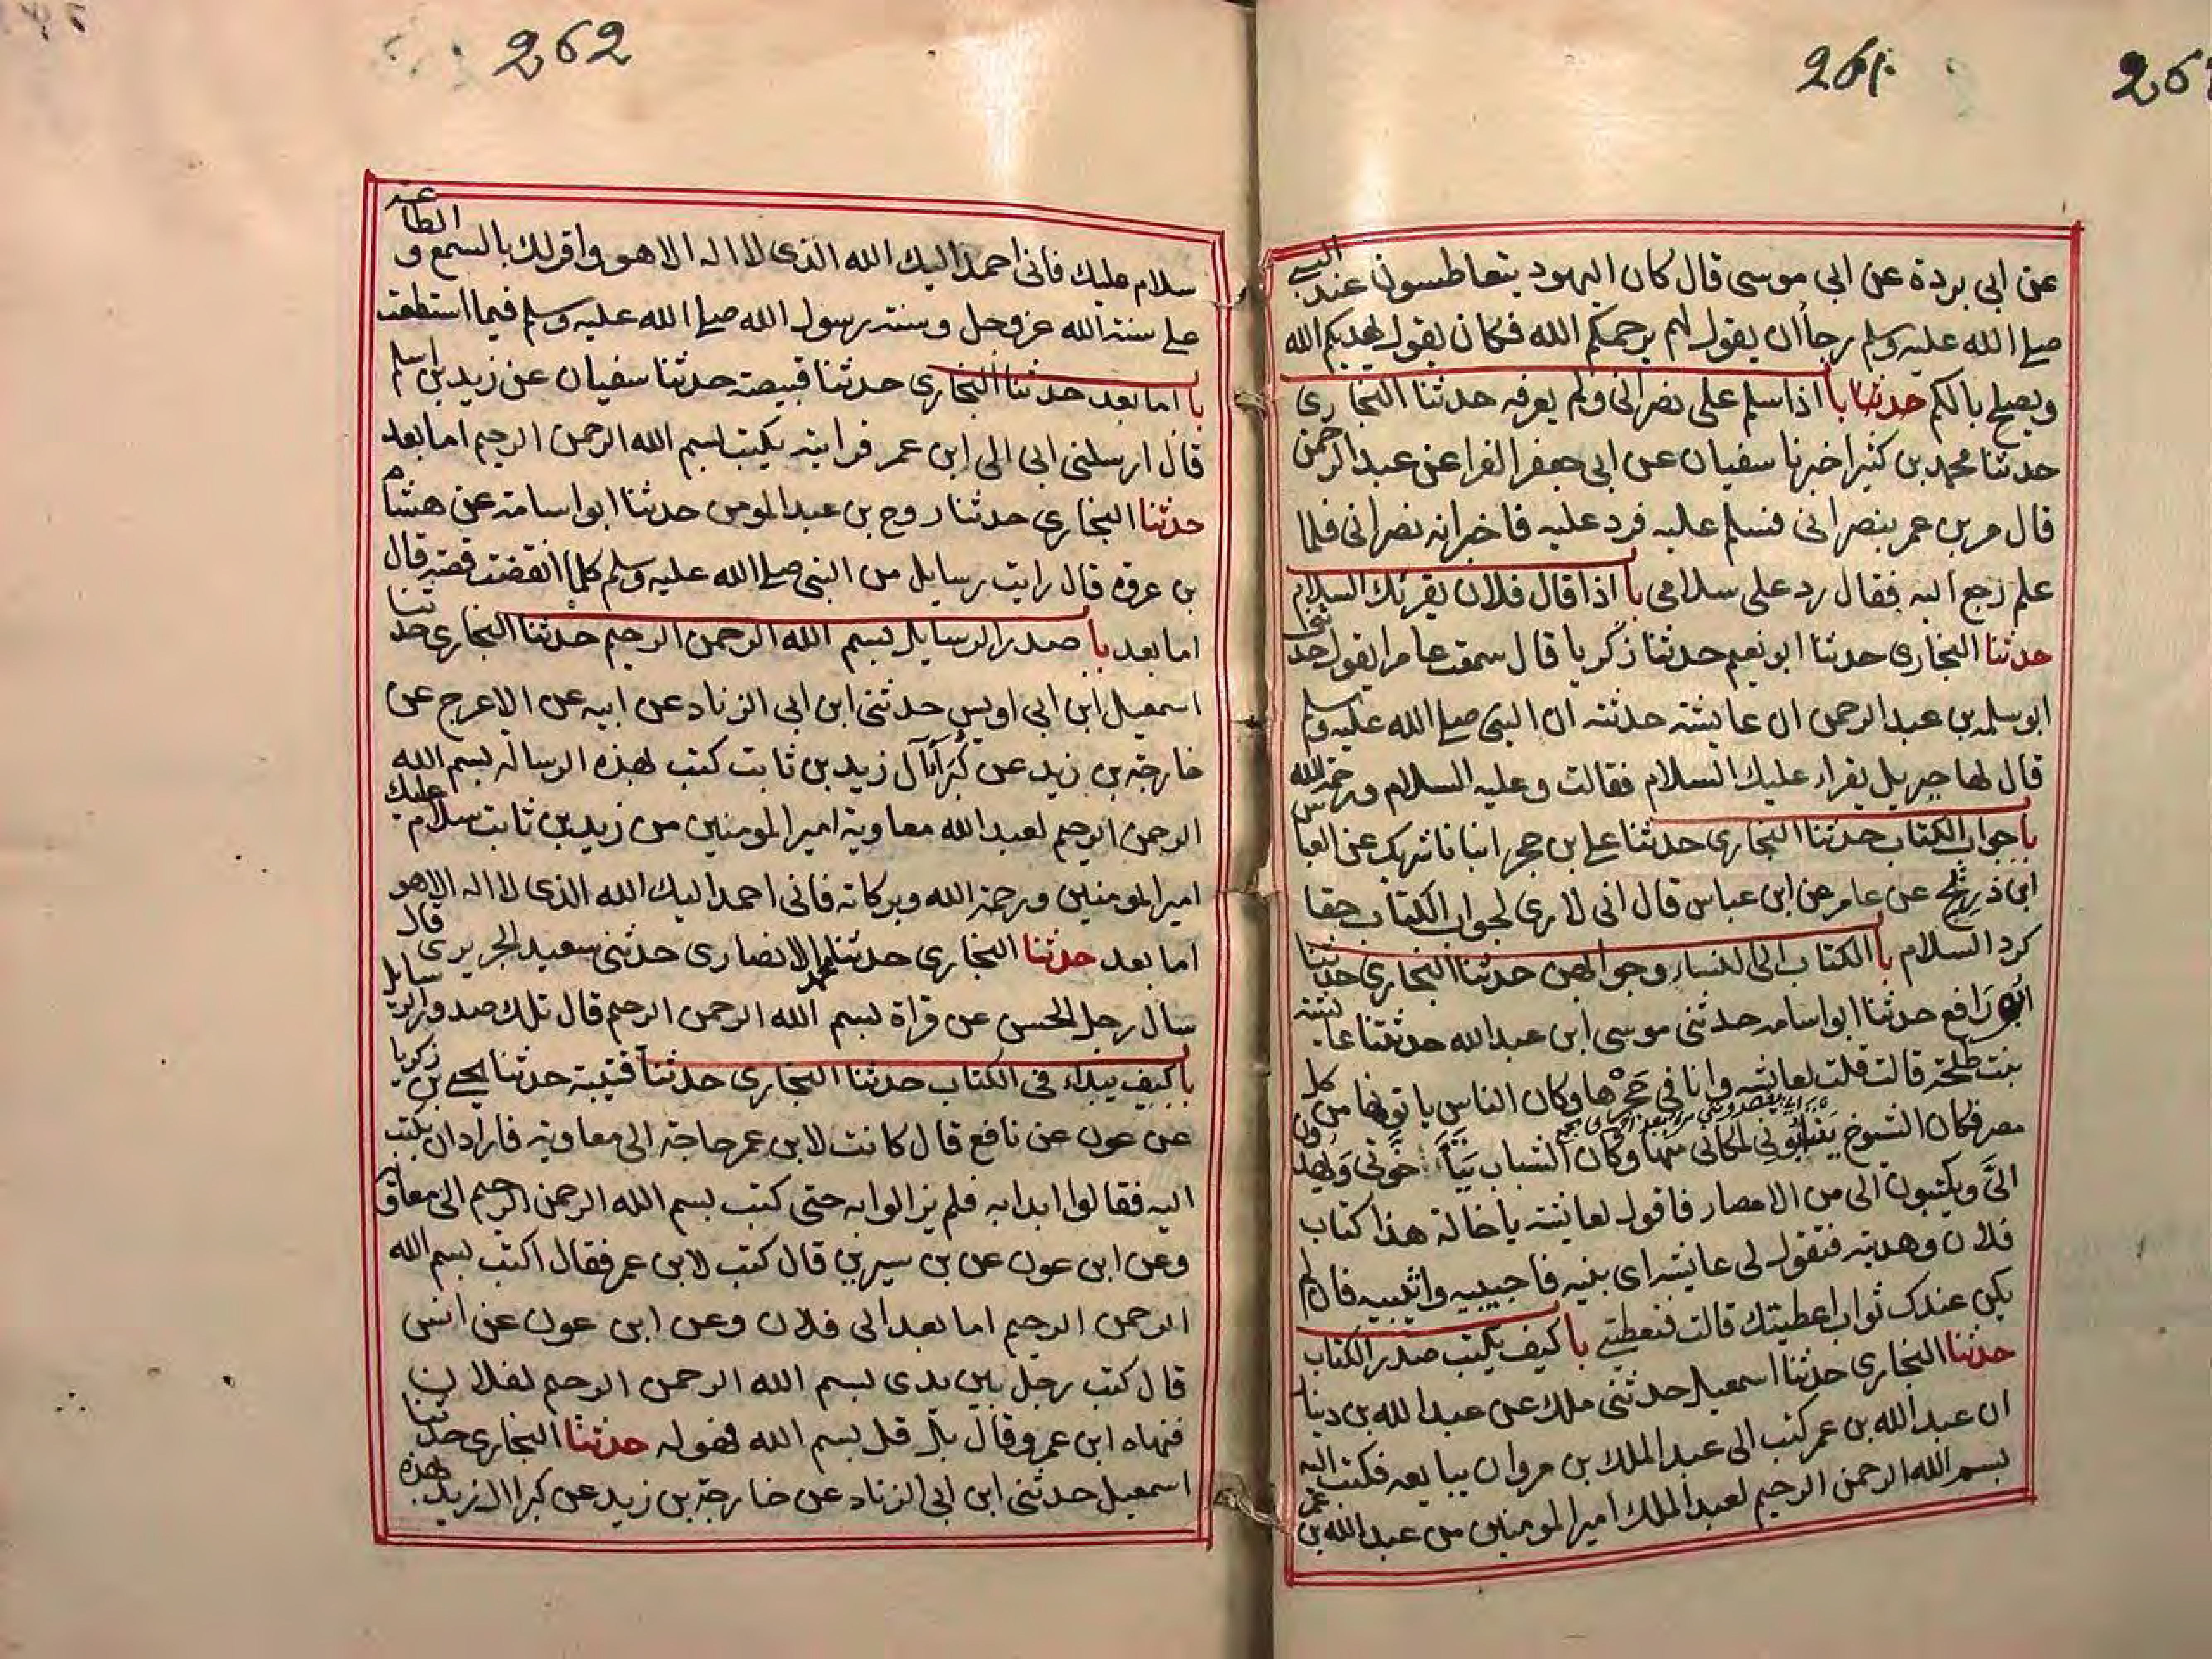 261
عن ابي بردة عن ابي موسى قال كان اليهود يتعاطسون عند النبي
صلى الله عليه وسلم رجا ان يقول لهم يرحمكم الله فكان يقول يهديكم الله
ويصلح بالكم حدثنا با اذا سلم على نصراني ولم يعرفه حدثنا البخاري
حدثنا محمد بن كثير اخبرنا سفيان عن ابي جعفر الفرا عن عبد الرحمن
قال مر بن عمر بنصراني فسلم عليه فرد عليه فاخبر انه نصراني فلما
علم رجع اليه فقال رد على سلامي با اذا قال فلان يقرئك السلام
حدثنا البخاري حدثنا ابو نعيم حدثنا زكريا قال سمعت عامرا يقول حدثني
ابو سلمه بن عبد الرحمن ان عايشة حدثته ان النبي صلى الله عليه وسلم
قال لها جبريل يقراء عليك السلام فقالت وعليه السلام ورحمة الله
با جواب الكتاب حدثنا البخاري حدثنا علي بن حجر انبانا شريك عن العباس
ابن ذريح عن عامر عن ابن عباس قال اني لارى لجواب الكتاب حقا
كرد السلام با الكتاب الى النساء وجوابهن حدثنا البخاري حدثنا
ابو رافع حدثنا ابو اسامه حدثني موسى ابن عبد الله حدثتنا عايشة
بنت طلحة قالت قلت لعايشه وانا في حجرها وكان الناس ياتونها من كل
مصر فكان الشيوخ لمكاني منها وكان الشباب
الي ويكتبون الى من الامصار فاقول لعايشة يا خالة هذا كتاب
فلان وهديته فتقول لي عايشه اي بنيه فاجيبيه واثيبيه فان لم
يكن عندك ثواب اعطيتك قالت فتعطيني با كيف يكتب صدر الكتاب
حدثنا البخاري حدثنا اسمعيل حدثني ملك عن عبد الله بن دينار
ان عبد الله بن عمر كتب الى عبد الملك بن مروان يبايعه فكتب اليه
بسم الله الرحمن الرحيم لعبد الملك امير المومنين من عبد الله بن عمر
262
سلام عليك فاني احمد اليك الله الذي لا اله الا هو واقر لك بالسمع والطاعة
على سنة الله عز وجل وسنة رسول الله صلى الله عليه وسلم فيما استطعت
با اما بعد حدثنا البخاري حدثنا قبيصة حدثنا سفيان عن زيد بن اسلم
قال ارسلني ابي الى ابن عمر فرايته يكتب بسم الله الرحمن الرحيم اما بعد
حدثنا البخاري حدثنا روح بن عبد المومن حدثنا ابو اسامة عن هشام
بن عروة قال رايت رسايل من النبي صلى الله عليه وسلم كلما انقضت قصة قال
اما بعد با صدر الرسايل بسم الله الرحمن الرحيم حدثنا البخاري حدثنا
اسمعيل ابن ابي اويس حدثني ابن ابي الزناد عن ابيه عن الاعرج عن
خارجة بن زيد عن كبرآء آل زيد بن ثابت كتب لهذه الرساله بسم الله
الرحمن الرحيم لعبد الله معاوية امير المومنين من زيد بن ثابت سلام عليك
امير المومنين ورحمة الله وبركاته فاني احمد اليك الله الذي لا اله الا هو
اما بعد حدثنا البخاري حدثنا محمد الانصاري حدثني سعيد الجريري قال
سال رجل الحسن عن قراة بسم الله الرحمن الرحيم قال تلك صدور الرسايل
با كيف يبداء في الكتاب حدثنا البخاري حدثنا قتيبة حدثنا يحيى بن زكريا
عن عون عن نافع قال كانت لابن عمر حاجة الى معاوية فاراد ان يكتب
اليه فقالوا ابدا به فلم يزالوا به حتى كتب بسم الله الرحمن الرحيم الى معاوية
وعن ابن عون عن بن سيرين قال كتب لابن عمر فقال اكتب بسم الله
الرحمن الرحيم اما بعد الى فلان وعن ابن عون عن انس
قال كتب رجل بين يدي بسم الله الرحمن الرحيم لفلان
فنهاه ابن عمر وقال بل قل بسم الله فهو له حدثنا البخاري حدثنا
اسمعيل حدثني ابن ابي الزناد عن خارجة بن زيد عن كبرا ال زيد لهذه